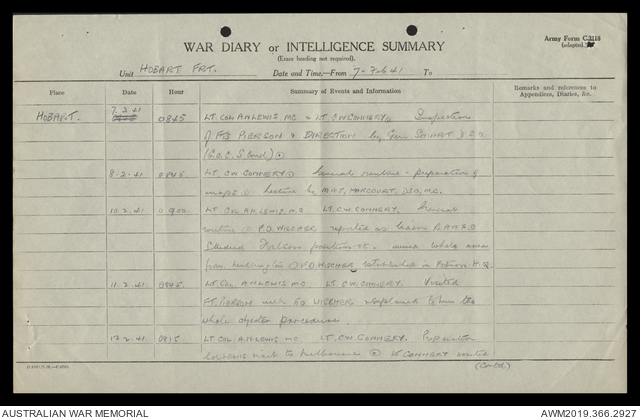 Army Form C.2118
(adapted.)
WAR DIARY or INTELLIGENCE SUMMARY
(Erase heading not required).
Unit HOBART FRT. Date and Time—From 7-2-41 To
Place Date Hour Summary of Events and Information Remarks and references to Appendices, Diaries, &c.
HOBART. 7.2.41 0845 LT. COL. A.H. LEWIS MC & LT. C.W. CONNERY. Inspection
of FTS PIERSON & DIRECTION by Gen SMART D.S.O
(G.O.C. S. Comd)
8.2.41 0845 LT. C.W. CONNERY General routine - preparation of
maps Lecture by MAJ. HARCOURT, DSO, MC.
10.2.41 0900 LT COL A.H. LEWIS. M.C LT. CW. CONNERY. General
routine P.O. WISCHER reported as
Fortress whole
from P.O WISCHER established in Fortress H.Q.
11.2.41 0845 LT. COL. A.H. LEWIS MC LT. C.W. CONNERY. Visited
FT. PIERSON with P.O WISCHER explained to him the
whole procedure.
12.2.41 0815 LT COL. A.H. LEWIS MC LT. C.W. CONNERY.
visit to Melbourne LT CONNERY
(Contd)
AUSTRALIAN WAR MEMORIAL
AWM2019.366.2927